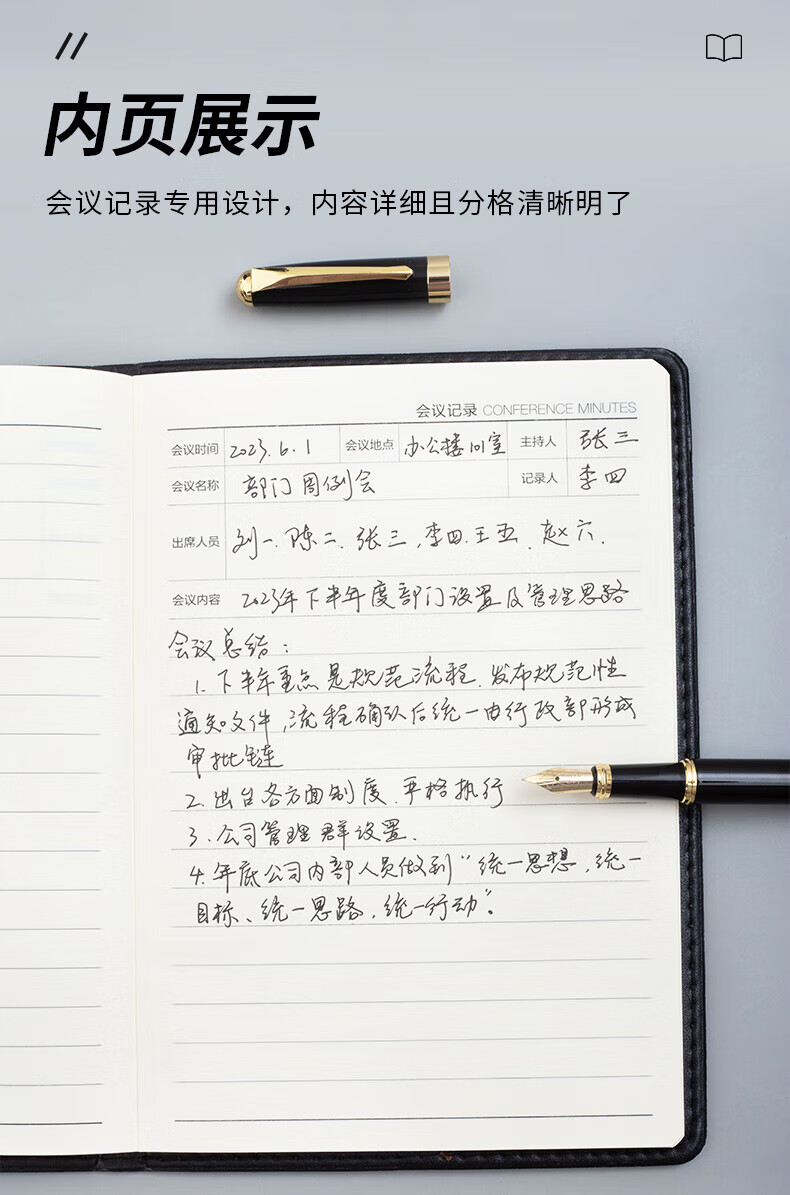 内页展示
会议记录专用设计，内容详细且分格清晰明了
会议记录 CONFERENCE MINUTES
会议时间 2023.6.1 会议地点 办公楼101室 主持人 张三
会议名称 部门周例会 记录人 李四
出席人员 刘一、陈二、张三、李四、王五、赵六.
会议内容 2023年下半年度部门设置及管理思路
会议总结：
1. 下半年重点是规范流程、发布规范性
通知文件，流程确认后统一由行政部形成
审批链
2. 出台各方面制度、严格执行
3. 公司管理群设置.
4. 年底公司内部人员做到“统一思想、统一
目标、统一思路、统一行动”。